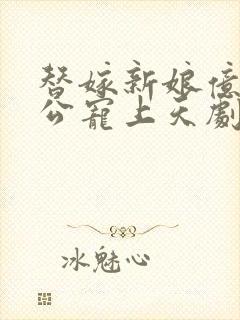 替嫁新娘億
公寵上天劇
冰魅心